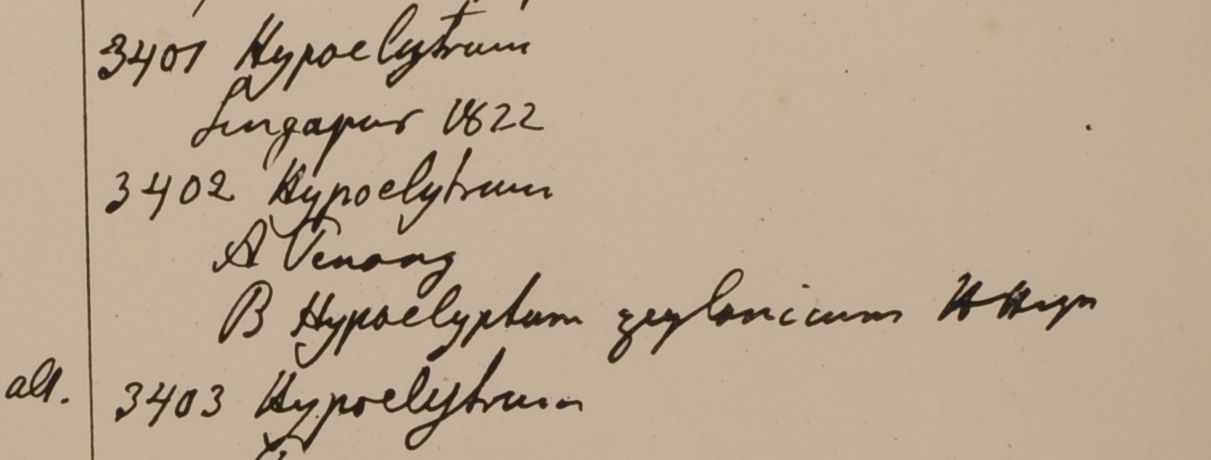 3401 Hypoelytrum
Singapur 1822
3402 Hypoelytrum
A Penang
B Hypoelyptum zeylanicum
alt. 3403 Hypoelytrum